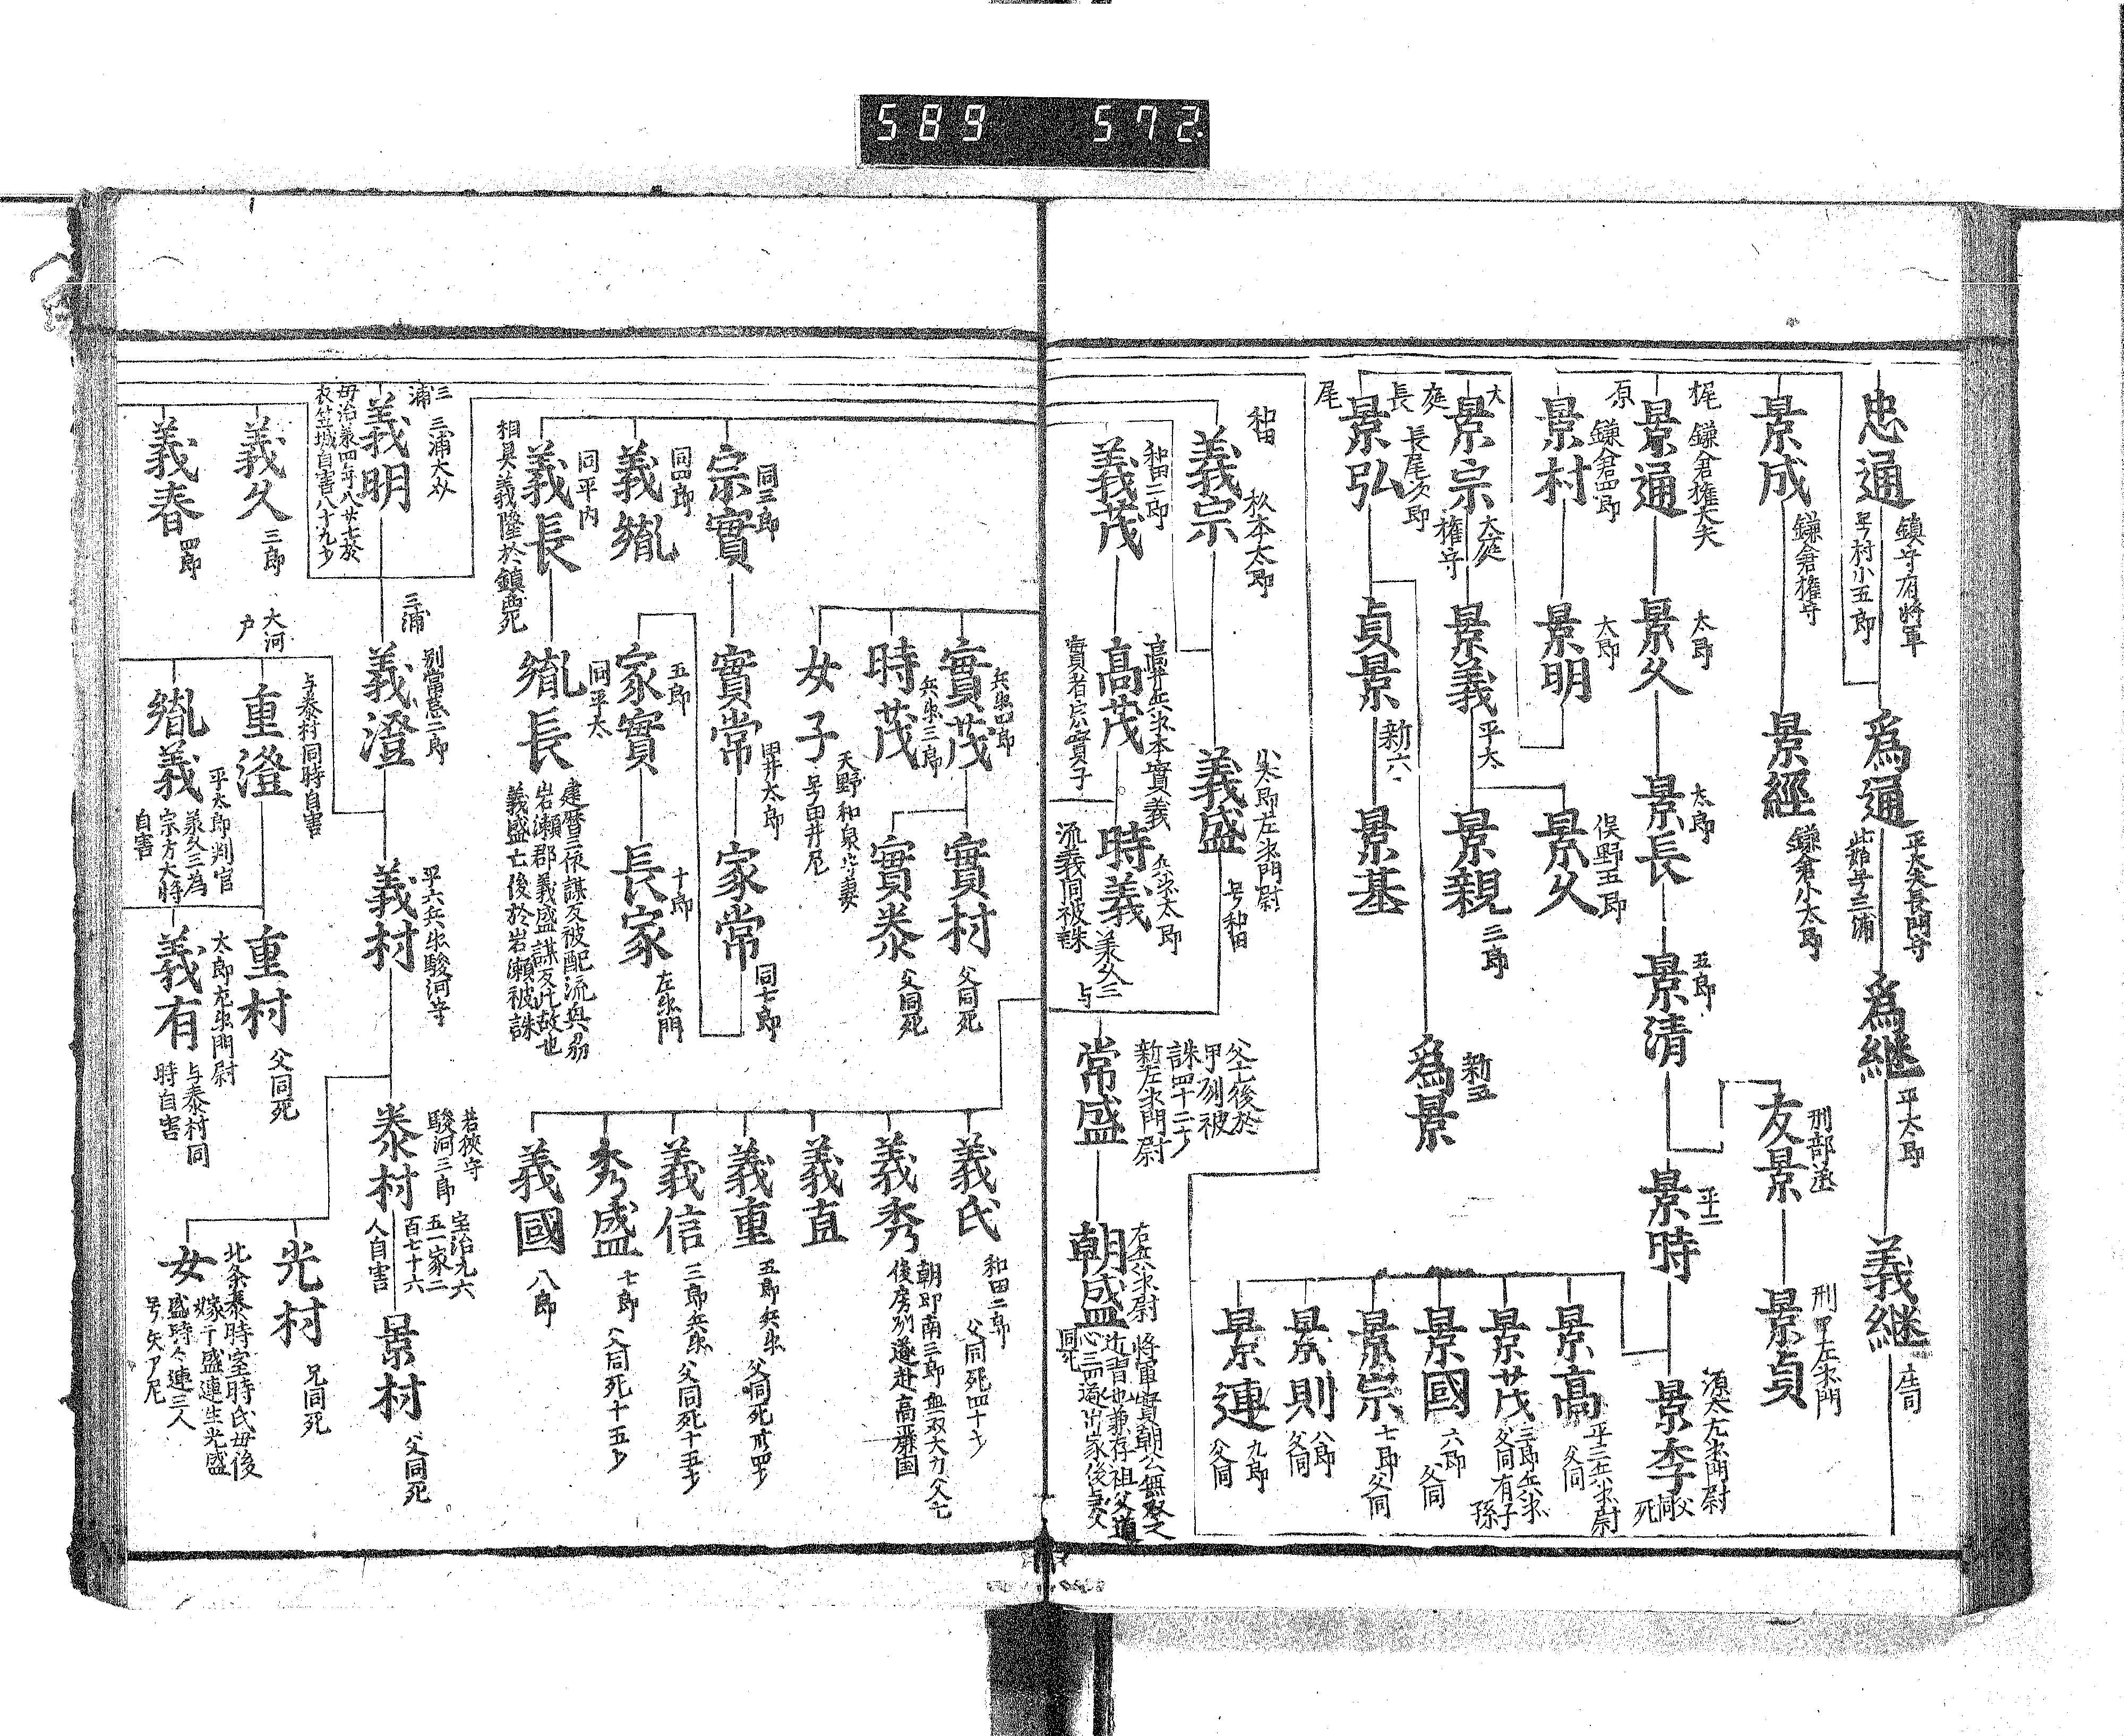 589 572
忠通
鎮守府将軍
号村小五郎
為通
平大夫長門守
此始号三浦
為継
平太郎
義継
庄司
景成
鎌倉権守
景經
鎌倉小太郎
友景
刑部丞
景貞
梶原
景通
鎌倉権大夫
景久
太郎
景長
太郎
景清
五郎
景時
平三
景季
源太左衛門尉
父同死
景高
平三兵衛尉
父同
景茂
三郎兵衛
父同有子孫
景國
六郎
父同
景宗
七郎
父同
景則
八郎
父同
景連
九郎
父同
景村
鎌倉四郎
景明
大郎
大庭
景宗
大庭権守
景義
平太
景久
俣野五郎
景親
三郎
長尾
景弘
長尾次郎
貞景
新六
景基
為景
新五
和田
義宗
杉本太郎
義盛
小太郎左衛門尉
号和田
義茂
和田二郎
高茂
高井兵衛本實義
實者宗實子
時義
兵衛太郎
承久三与
流義同被誅
常盛
父亡後於
甲州被
誅四十二才
新左衛門尉
朝盛
右兵衛尉
将軍實朝公無双之
近習也兼存祖父道
心而遂出家後与父
同死
實茂
兵衛四郎
實村
父同死
實泰
父同死
時茂
兵衛三郎
女子
天野和泉守妻
号由井尼
宗實
同三郎
實常
由井太郎
家常
同七郎
家實
五郎
長家
十郎
左衛門
義胤
同四郎
義長
同平内
相具義隆於鎮西死
胤長
同平太
建暦三依謀反被配流奥州
岩瀬郡義盛謀反此故也
義盛亡後於岩瀬被誅
義氏
和田二郎
父同死四十才
義秀
朝即南三郎無双大力父亡
後房州遂赴高麗国
義直
義重
五郎兵衛
父同死卅四才
義信
三郎兵衛
父同死十五才
秀盛
七郎
父同死十五才
義國
八郎
三浦
義明
三浦大介
母治承四年八廿七於
衣笠城自害八十九才
三浦
義澄
別當惣二郎
義村
平六兵衛駿河守
泰村
若狭守
駿河三郎
宝治元六
五一家二
百七十六
人自害
景村
父同死
光村
兄同死
女
北条泰時室時氏母後
嫁于盛連生光盛
盛時々連三人
号矢ア尼
義久
三郎
大河戸
重澄
与泰村同時自害
重村
父同死
義春
四郎
胤義
平太郎判官
承久三為
宗方大将
自害
義有
太郎左衛門尉
与泰村同
時自害